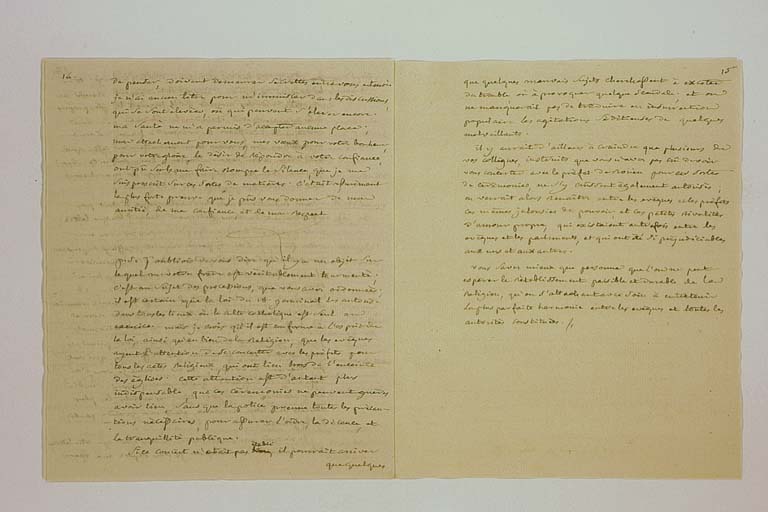 14
de penser, doivent demeurer secrettes entre vous et moi
je n'ai aucun titre pour m'immiscer dans les discussions
qui se sont élevées, ou qui peuvent s'élever encore.
ma santé ne m'a permis d'accepter aucune place;
mon attachement pour vous, mes vœux pour votre bonheur,
pour votre gloire, le desir de répondre à votre confiance,
ont pu seuls me faire rompre le silence, que je me
suis prescrit sur ces sortes de matières. c'était assurément
la plus forte preuve que je pus vous donner de mon
amitié, de ma confiance et de mon respect
P.S. J'oubliois de vous dire qu'il y a un objet sur
lequel votre est véritablement tourmenté;
c'est au sujet des processions, que vous avez ordonnées.
il est certain que la loi du 18 germinal les autorise
dans les places où le culte catholique est seul en
exercice. mais je crois qu'il est conforme à l'esprit de
la loi, ainsi qu'au bien de la Religion, que les évêques
ayent l'attention de se concerter avec les préfets pour
tous les actes Religieux, qui ont lieu hors de l'enceinte
des églises. cette attention est d'autant plus
indispensable que ces cérémonies ne peuvent guères
avoir lieu sans que la police prenne toutes les précau-
tions nécessaires, pour assurer l'ordre, la décence et
la tranquillité publique.
Si ce concert n'était pas établi, il pourrait arriver
que quelques
15
que quelques mauvais sujets cherchassent à exciter
du trouble ou à provoquer quelque scandale. et on
ne manquerait pas de traduire en insurrection
populaire les agitations séditieuses de quelques
malveillants.
il y aurait d'ailleurs à craindre que plusieurs de
vos collègues, instruits que vous n'avez pas cru devoir
vous concerter avec le préfet de Rouen pour ces sortes
de cérémonies, ne s'y crussent également autorisés;
on verrait alors renaître entre les évêques et les préfets
ces mêmes jalousies de pouvoir et ces petites rivalités
d'amour propre, qui existaient autrefois entre les
évêques et les parlements, et qui ont été si préjudiciables
aux uns et aux autres.
vous savez mieux que personne que l'on ne peut
espérer le rétablissement paisible et durable de la
Religion, qu'en s'attachant avec soin à entretenir
la plus parfaite harmonie entre les évêques et toutes les
autorités constituées.